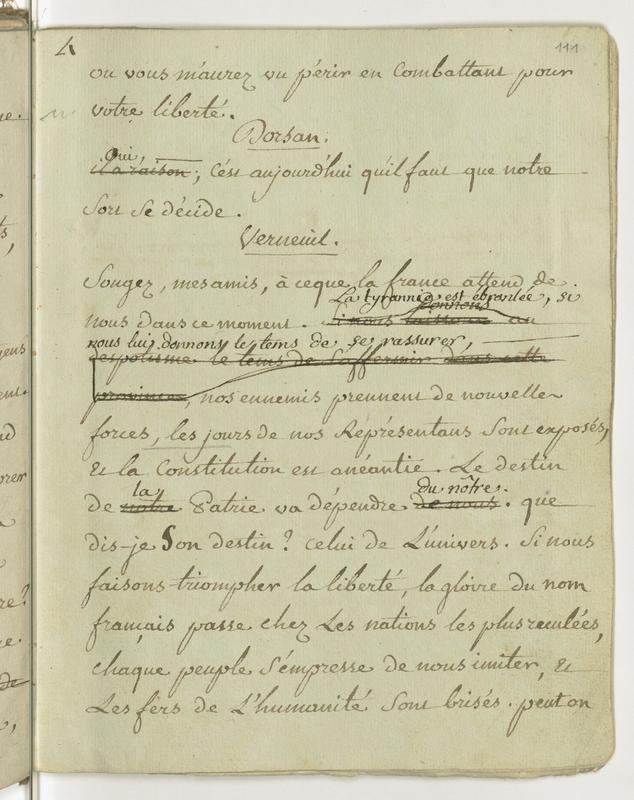 4 111
ou vous m'aurez vu périr en Combattant pour
votre liberté.
Dorsan.
Oui,
il a raison; C'est aujourd'hui qu'il faut que notre
Sort se décide.
Verneuil.
Songez, mes amis, à ce que la france attend de
La tyrannie est ébranlée, si
donnons
nous dans ce moment. Si nous laissons au
nous lui donnons le tems de se rassurer,
despotisme le tems de s'affermir dans cette
province, nos ennemis prennent de nouvelles
forces, les jours de nos Représentans Sont exposés,
Et la Constitution est anéantie. Le destin
la du nôtre.
de notre Patrie va dépendre de nous. que
dis-je Son destin? celui de L'univers. Si nous
faisons triompher la liberté, la gloire du nom
français passe chez Les nations les plus reculées,
chaque peuple S'empresse de nous imiter, Et
Les fers de L'humanité Sont brisés. peut on